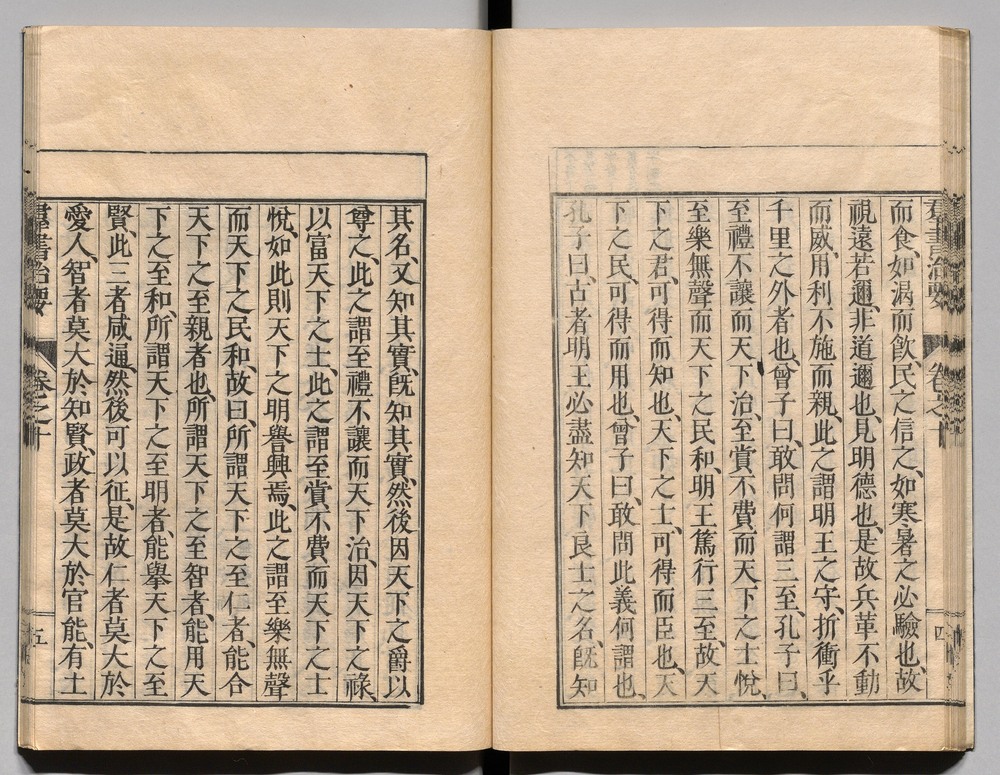 羣書治要 卷之十 四
而食、如渴而飲、民之信之、如寒暑之必驗也、故
視遠若邇、非道邇也、見明德也、是故兵革不動
而威、用利不施而親、此之謂明王之守、折衝乎
千里之外者也、曾子曰、敢問何謂三至、孔子曰、
至禮不讓而天下治、至賞不費而天下之士悅、
至樂無聲而天下之民和、明王篤行三至、故天
下之君、可得而知也、天下之士、可得而臣也、天
下之民、可得而用也、曾子曰、敢問此義何謂也、
孔子曰、古者明王必盡知天下良士之名、既知
其名、又知其實、既知其實、然後因天下之爵以
尊之、此之謂至禮不讓而天下治、因天下之祿、
以富天下之士、此之謂至賞不費而天下之士
悅、如此則天下之明譽興焉、此之謂至樂無聲
而天下之民和、故曰、所謂天下之至仁者、能合
天下之至親者也、所謂天下之至智者、能用天
下之至和、所謂天下之至明者、能舉天下之至
賢、此三者咸通、然後可以征、是故仁者莫大於
愛人、智者莫大於知賢、政者莫大於官能、有土
羣書治要 卷之十 五